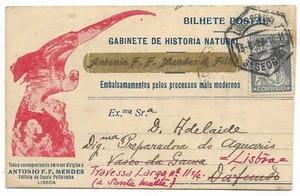 BILHETE POSTAL
GABINETE DE HISTORIA NATURAL
Antonio F. F. Mendes & Filho
Embalsamamentos pelos processos mais modernos
Ex.ma Sr.a
D. Adelaide
Dig. Preparadora do Aquario
Vasco da Gama = Lisboa =
Travessa Larga nº 11-4º Dafundo
(a Santa Marta)
Toda a correspondencia deve ser dirigida a
ANTONIO F. F. MENDES
Edificio da Escola Politecnica
LISBOA
CORREIO